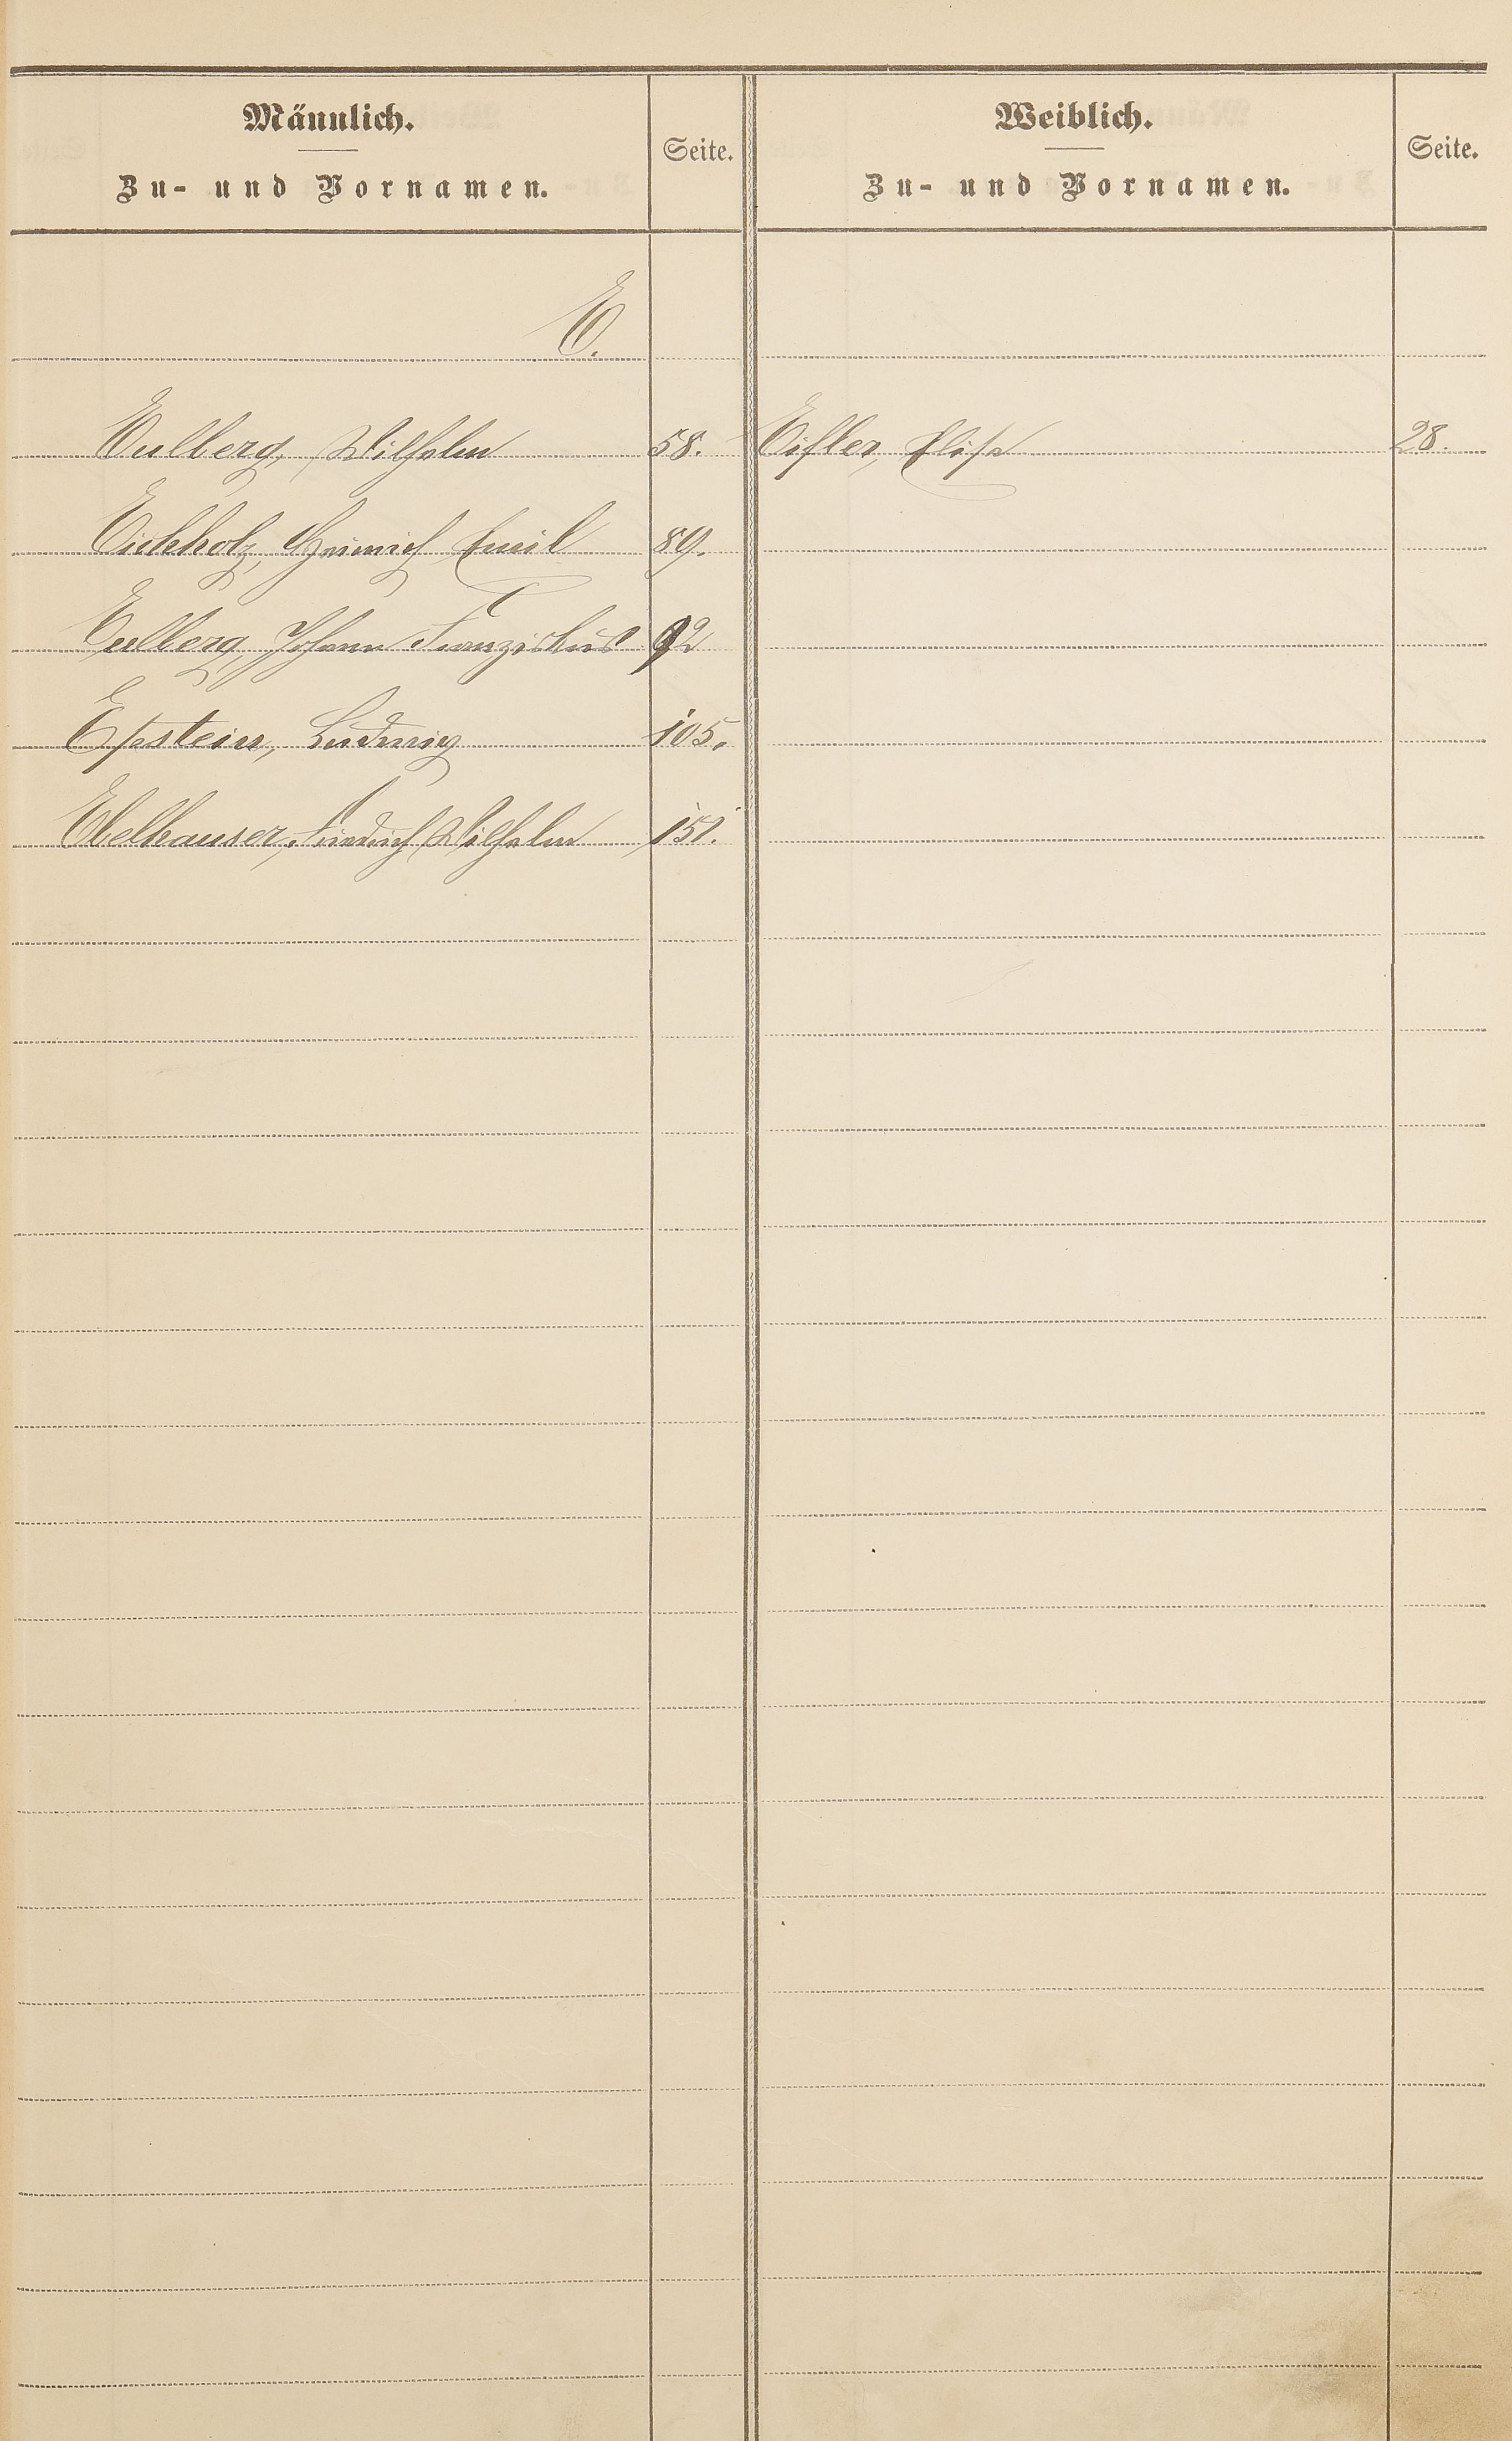 Männlich.
Zu- und Vornamen.
Seite.
Weiblich.
Zu- und Vornamen.
Seite.
E.
Eulberg, Wilhelm 58. Eifler, Elise 28.
Eichholz, Heinrich Emil 89.
Eulberg, Johann Franziskus 92
Epstein, Ludwig 105.
Ebelhauser, Friedrich Wilhelm 151.